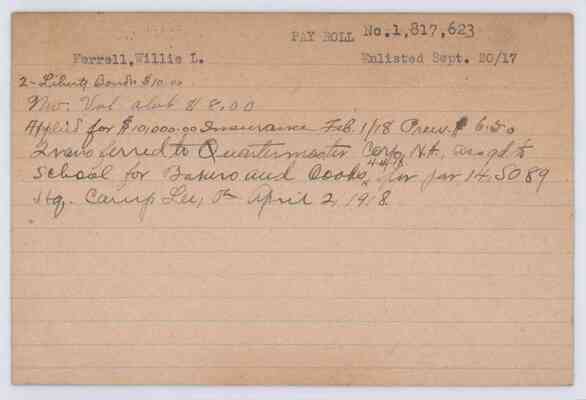 PAY ROLL No.1,817,623
Ferrell,Willie L. Enlisted Sept. 20/17
2-Liberty Bonds $10.00
Mo. Vol alot $ 8.00
Applied for $10,000.00 Insurance Feb. 1/18 Prem. $ 6.50
Transferred to Quartermaster Corp, N.A. assgd to
School for Bakers and Cooks, 4-4/18 par 14, SO 89
Hq. Camp Lee, Va April 2, 1918.